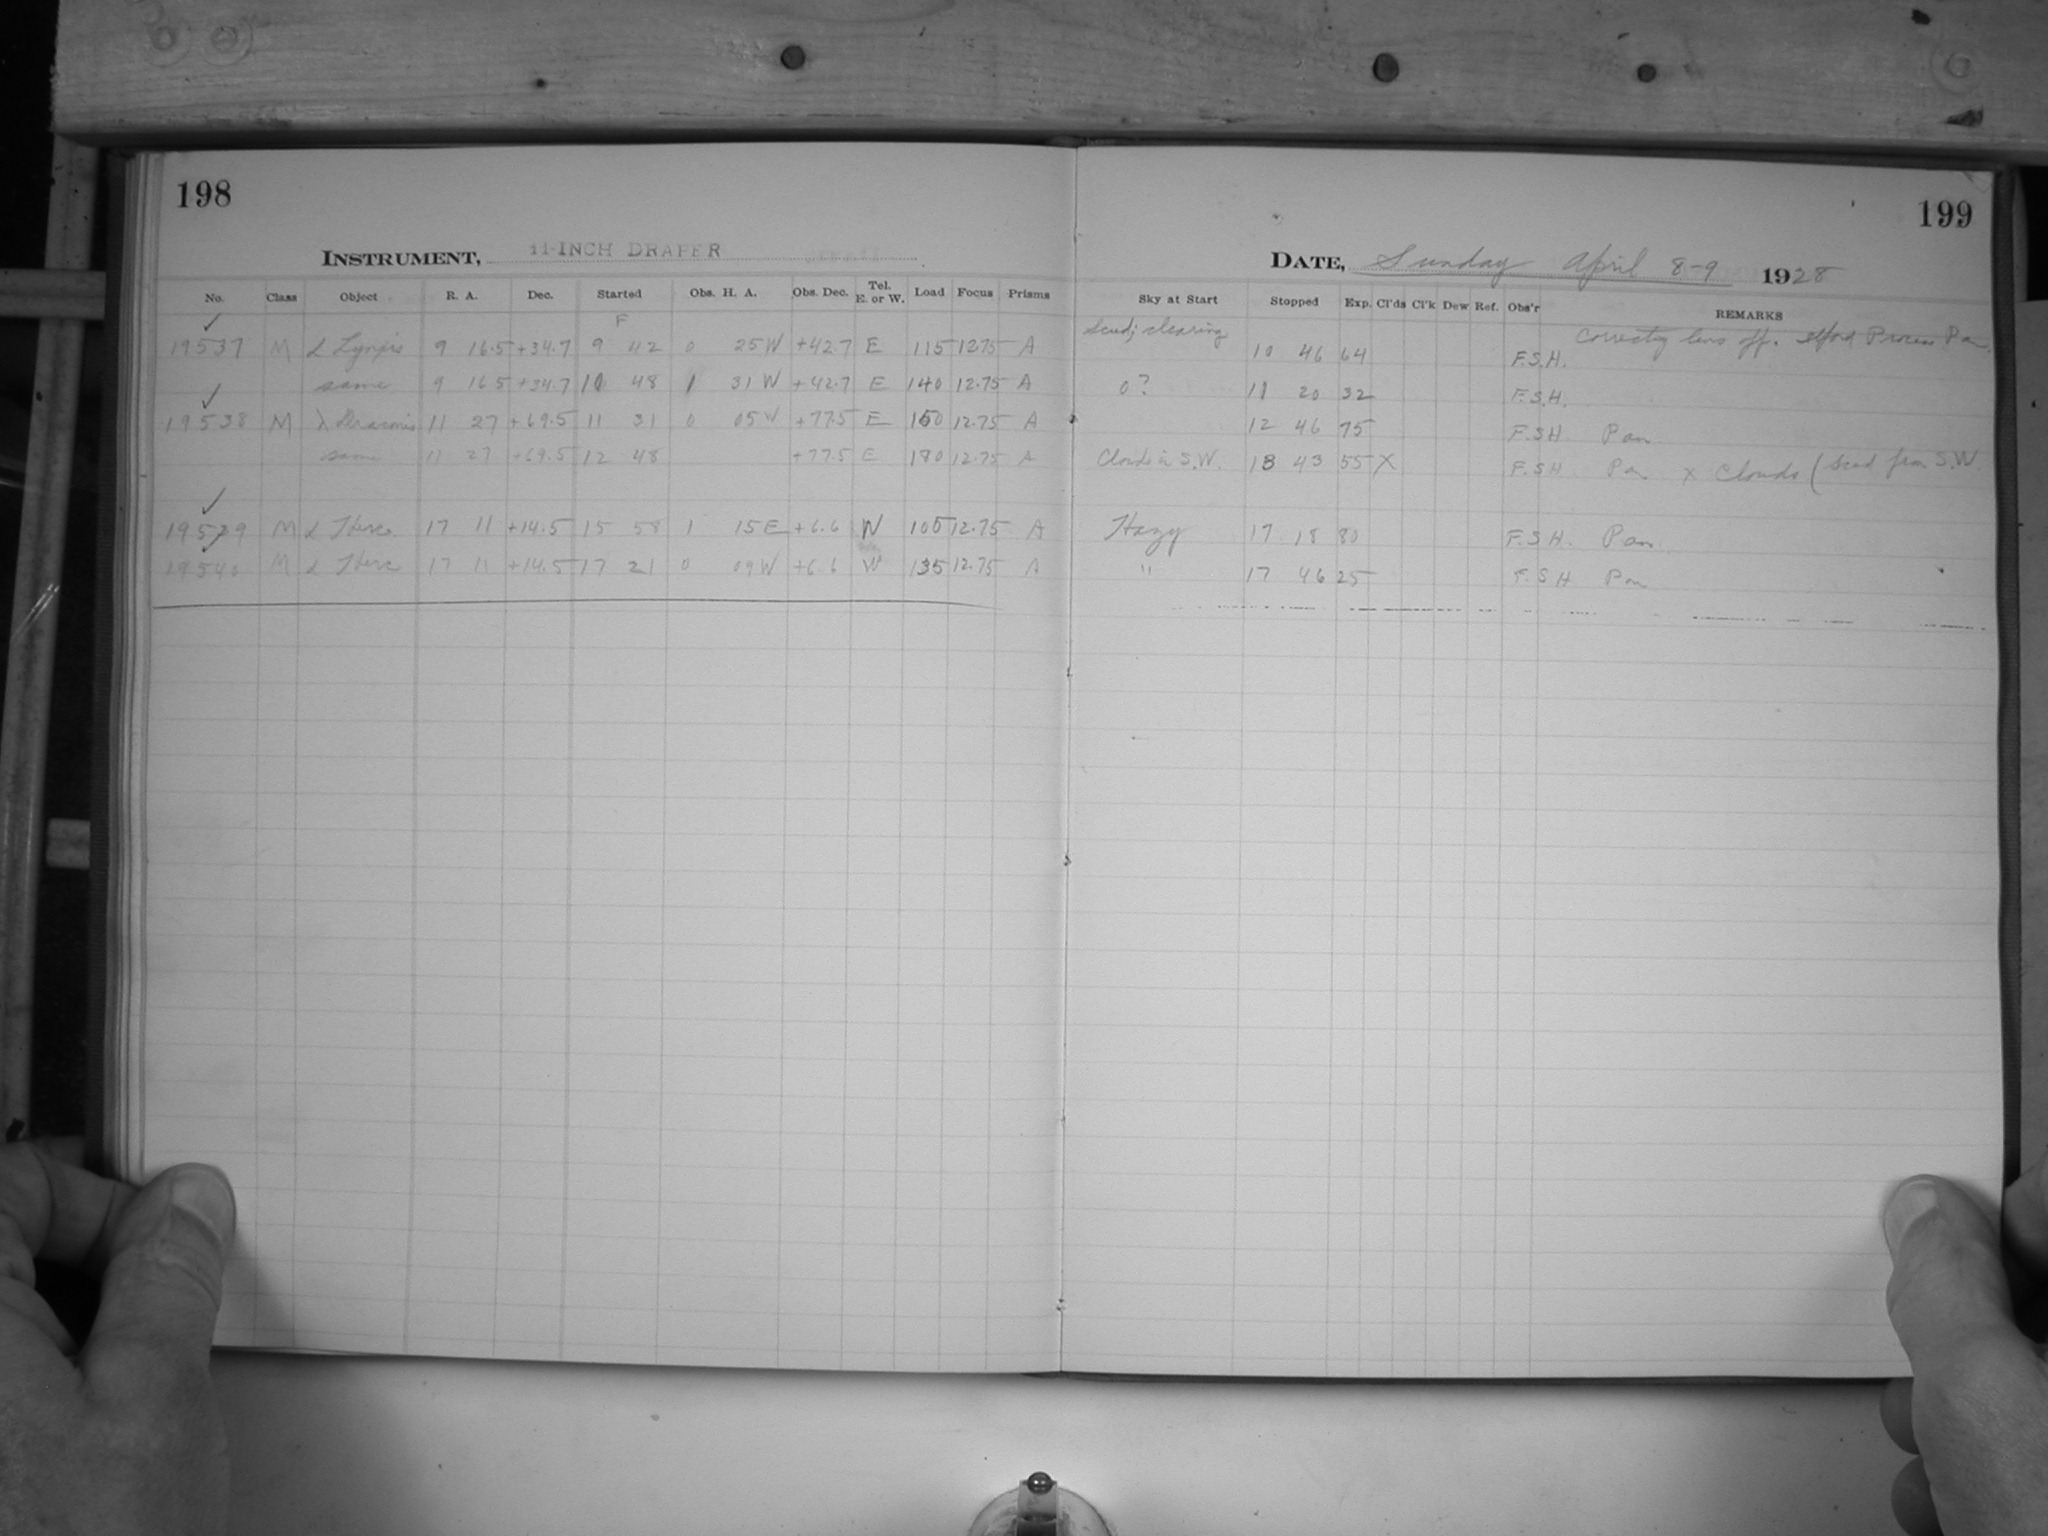 198
199
INSTRUMENT, 11-INCH DRAPER
DATE, Sunday April 8-9 1928
No. Class Object R. A. Dec. Started Obs. H. A. Obs. Dec. Tel. E. or W. Load Focus Prisms Sky at Start Stopped Exp. Cl'ds Cl'k Dew Ref. Obs'r REMARKS
F
✓ 19537 M α Lyncis 9 16.5 +34.7 9 42 0 25 W +42.7 E 115 1275 A Scud; clearing 10 46 64 F.S.H. Correcting lens off. Ilford Process Pan.
same 9 16 5 +34.7 10 48 1 31 W +42.7 E 140 12.75 A 0? 11 20 32 F.S.H.
✓ 19538 M λ Draconis 11 27 +69.5 11 31 0 05 W +77.5 E 12.75 A 12 46 75 F.S.H. Pan
same 11 27 +69.5 12 48 +77.5 E 12.75 A Clouds in S.W. 13 43 55 X F.S.H. Pan x Clouds (Scud from S.W.
✓ 19539 M α Herc. 17 11 +14.5 15 58 1 15 E +6.6 W 105 12.75 A Hazy 17 18 80 F.S.H. Pan.
19540 M α Herc 17 11 +14.5 17 21 0 09 W +6.6 W 135 12.75 A " 17 46 25 F.S.H Pan